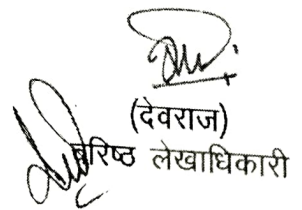 (देवराज)
वरिष्ठ लेखाधिकारी